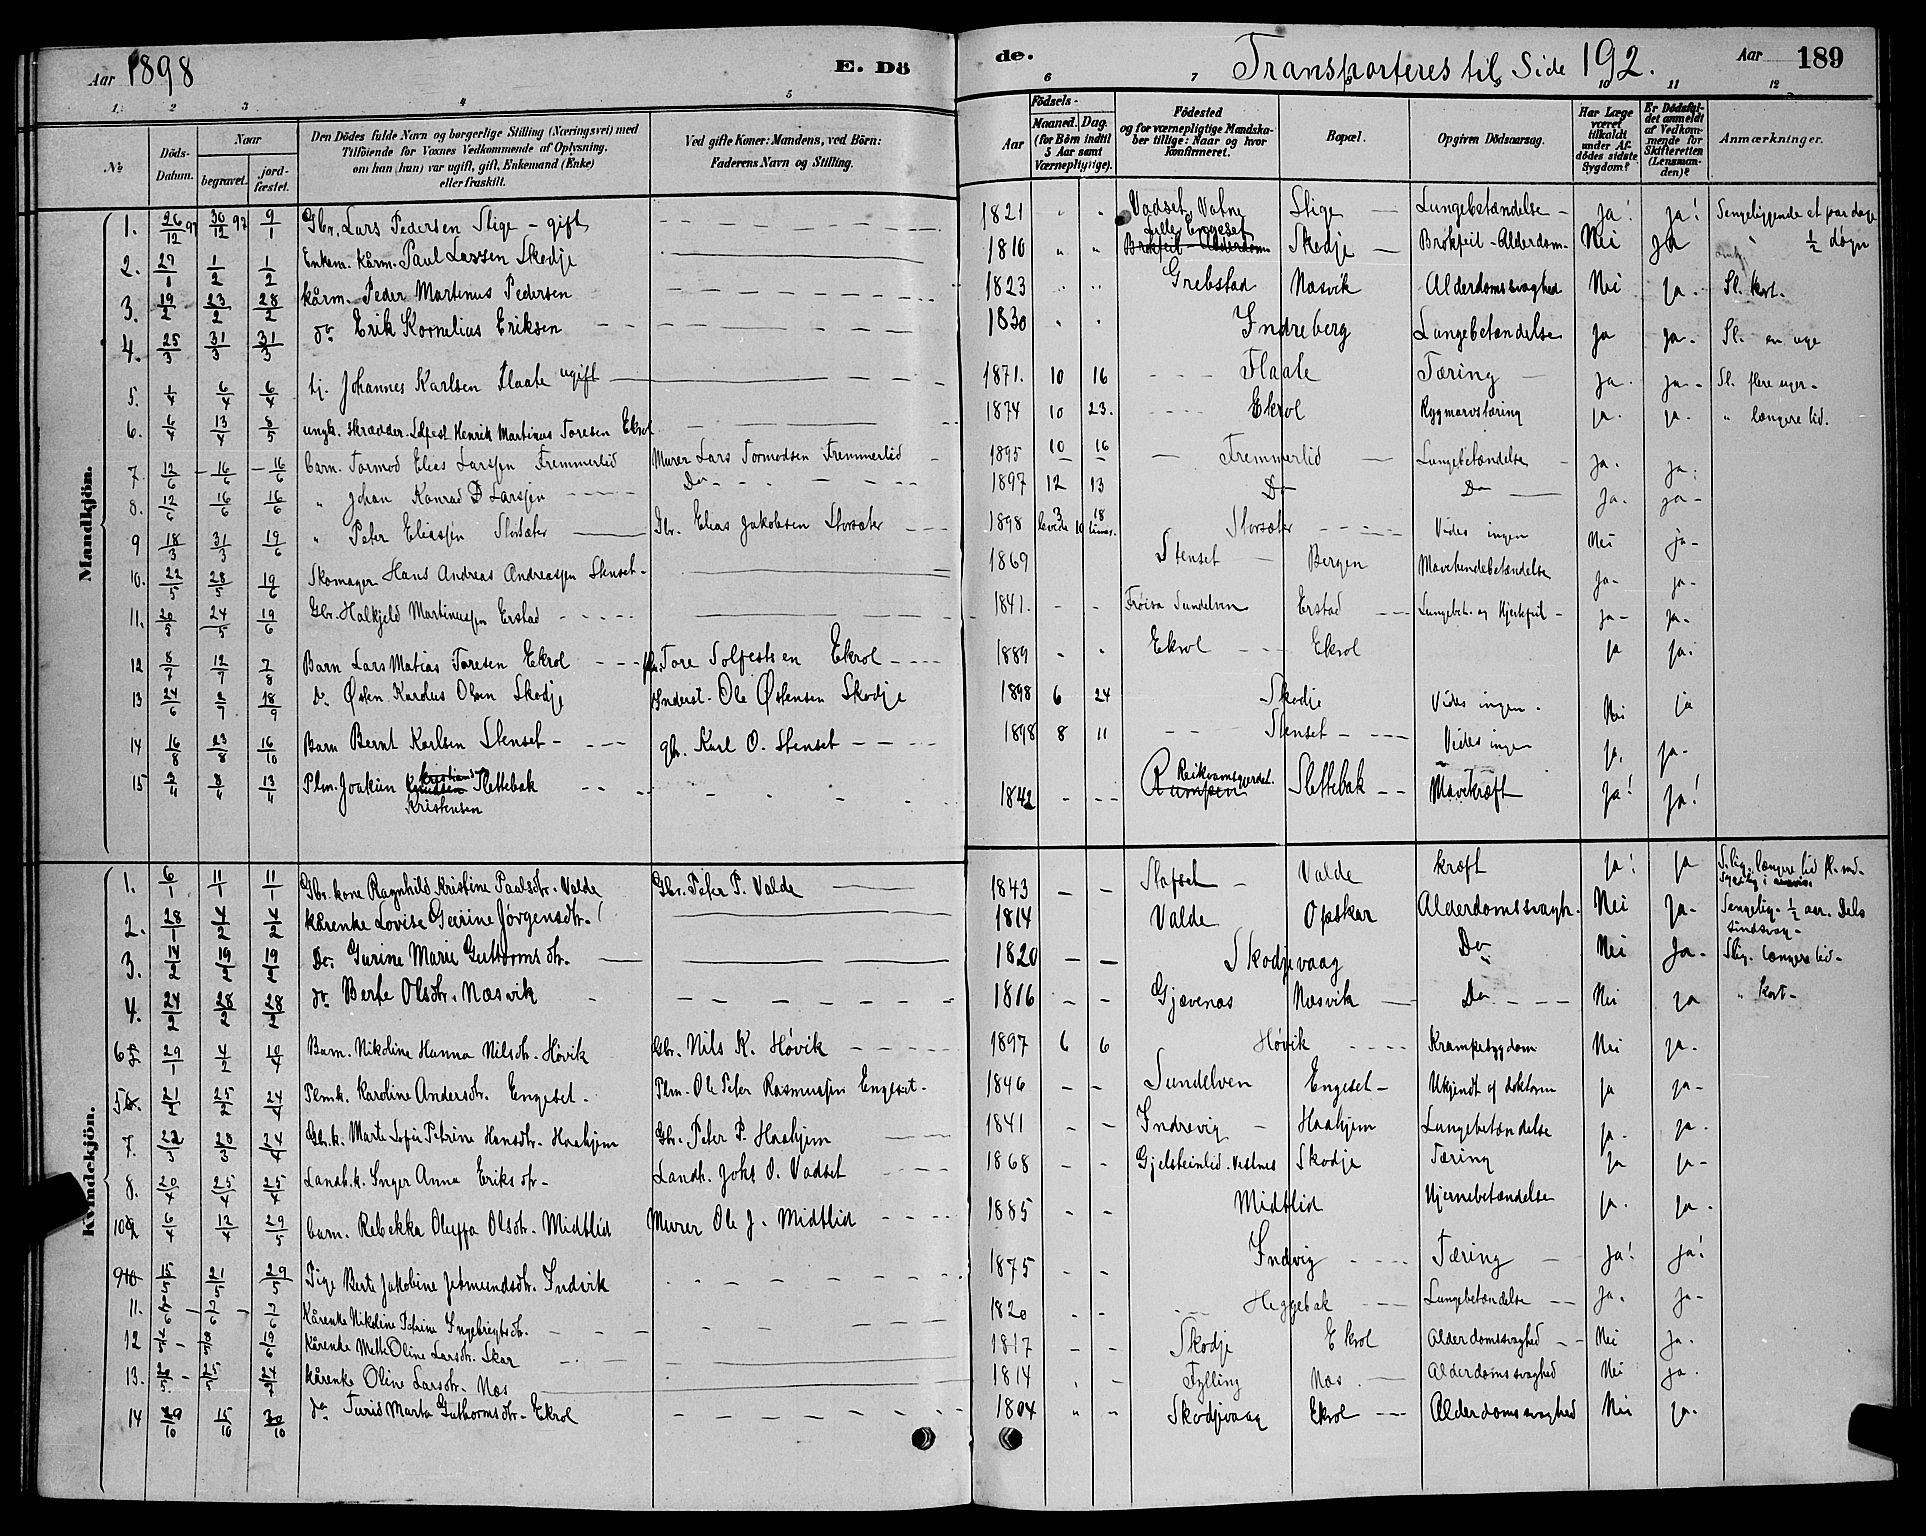 Aar 1898 E. Dö
de. Transporteres til Side 192. Aar 189
1. 2 3 4 5 6 7 8 9 10 11 12
No Döds-Datum. Naar begravet. jordfæstet. Den Dödes fulde Navn og borgerlige Stilling (Næringsvei) med Tilföiende for Voxnes Vedkommende af Oplysning, om han (hun) var ugift, gift, Enkemand (Enke) eller fraskilt. Ved gifte Koner: Mandens, ved Börn: Faderens Navn og Stilling. Födsels- Aar Maaned. Dag. (for Börn indtil 5 Aar samt Værnepligtige). Födested og for værnepligtige Mandskaber tillige: Naar og hvor konfirmeret. Bopæl. Opgiven Dödsaarsag. Har Læge været tilkaldt under Afdödes sidste Sygdom? Er Dödsfaldet anmeldt af Vedkommende for Skifteretten (Lensmanden)? Anmærkninger.
Mandkjön.
1. 26/12 97 30/12 97 9/1 Gbr. Lars Pedersen Slige - gift 1821 " " Vadset, Vatne Slige Lungebetændelse - Ja! Ja! Sengeliggende et par dage
2. 27/1 1/2 1/2 Enkem. kårm. Paul Larsen Skodje 1810 " " Lille Engeset Brokfeil - Alderdom Skodje Brokfeil - Alderdom - Nei Ja " 1/2 døgn
3. 19/2 23/2 28/2 kårm. Peder Martinus Pedersen 1823 " " Grebstad Næsvik Alderdomssvaghed Nei Ja. Sl. kort.
4. 25/3 31/3 31/3 do Erik Kornelius Eriksen 1830 " " Indreberg Lungebetændelse Ja Ja. Sl. en uge
5. 1/4 6/4 6/4 tj. Johannes Karlsen Flaate ugift 1871. 10 16 Flaate Tæring Ja. Ja. Sl. flere uger.
6. 6/4 13/4 8/5 ungk. skrædder. Solfest Henrik Martinus Toresen Ekrol 1874 10 23. Ekrol Rygmarvstæring Ja. Ja. " længere tid.
7. 12/6 16/6 16/6 barn. Tormod Elias Larssen Fremmerlid Murer Lars Tormodsen Fremmerlid 1895 10 16 Fremmerlid Lungebetændelse Ja. Ja.
8. 12/6 16/6 16/6 " Johan Konrad D Larssen Do 1897 12 13 Do Do Ja. Ja
9 18/3 31/3 19/6 " Peter Eliassen Storsæter Gbr. Elias Jakobsen Storsæter 1898 3 18 levede 10 timer. Storsæter Vides ingen Nei Ja
10. 22/5 28/5 19/6 Skomager Hans Andreas Andreassen Stenset 1869 Stenset Bergen Mavehindebetændelse Ja Ja
11. 20/5 24/5 19/6 Gbr. Halkjeld Martinussen Erstad 1841. - - Frøisa Sundelven Erstad Lungebet. og Hjertefeil Ja Ja
12 8/7 12/7 7/8 Barn Lars Matias Toresen Ekrol Tore Solfestsen Ekrol 1889 " " Ekrol Ekrol Ja Ja
13 24/6 2/7 18/9 Do Østen Karolus Olsen Skodje Inderst. Ole Østensen Skodje 1898 6 24 Skodje Vides ingen. Nei Ja
14 16/8 23/8 16/10 Barn Bernt Karlsen Stenset gbr. Karl O. Stenset 1898 8 11 Stenset Vides ingen Ja, Ja
15 8/11 13/11 Plm. Joakim Knudsen Kristians Kristensen Slettebak 1842 - - Rumpen Reitvamsgjerdet. Slettebak Mavekræft Ja! Ja!
Kvindekjön.
1. 6/1 11/1 11/1 Gbr. kone Ragnhild Kristine Paulsdtr. Valde Gbr. Peter P. Valde 1843 - - Slafset Valde kræft Ja! Ja S.lig. længere tid
2. 28/1 4/2 4/2 kårenke Lovise Gurine Jørgensdtr. 1814 Valde Opskar Alderdomssvagh. Nei Ja Sengelig. 1/2 aar. Dels sindssvag
3. 14/2 19/2 19/2 Do. Gurine Marie Guttormsdtr. 1820 - - Skodjevaag Do Nei Ja Slig. længere tid
4. 24/2 28/2 28/2 do. Berte Olsdtr. Næsvik 1816 - - Gjævenæs Næsvik Do Nei Ja " kort
6 29/1 4/2 10/4 Barn. Nikoline Hanna Nilsdtr. Høvik Gbr. Nils K. Høvik 1897 6 6 Høvik Krampesygdom Nei Ja.
5 21/2 25/2 24/4 Plmk. Karoline Andersdtr. Engeset. Plm. Ole Peter Rasmussen Engeset 1846 - - Sundelven Engeset Ukjendt af doktoren Ja Ja
7. 22/3 28/3 24/4 Gbr.k. Marte Sofie Petrine Hansdtr. Haahjem Gbr. Peter P. Haahjem 1841 - - Indrevig Haahjem Lungebetændelse Ja Ja
8. 20/4 25/4 25/4 Landh.k. Inger Anna Eriksdtr Landh. Johs O. Vadset 1868 - - Gjelsteinlid. Vestnes Skodje Tæring Ja Ja
10 6/4 12/4 29/5 barn. Rebekka Oluffa Olsdtr. Midtlid Murer Ole J. Midtlid 1885 - - Midtlid Hjernebetændelse Ja. Ja.
9 10 15/5 21/5 29/5 Pige Berte Jakobine Jetmundsdtr. Indvik 1875 - - Indvig Tæring Ja! Ja!
11. 7/6 7/6 Kårenke Nikoline Petrine Ingebregtsdtr. 1820 Heggebak Lungebetændelse Ja. Ja
12 19/6 kårenke Mette Oline Larsdtr. Skar 1817 - - Skodje Ekrol Alderdomssvaghed Nei Ja.
13. 25/5 kårenke Oline Larsdtr. Næs 1814 Fylling Næs Alderdomssvaghed Nei Ja.
14 15/10 30/10 do Turis Marta Guthormsdtr. Ekrol 1804 " " Skodjevaag Ekrol Alderdomssvaghed Nei Ja.